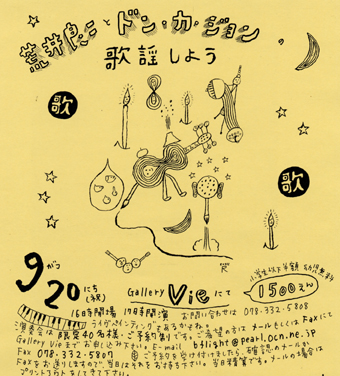 荒井良二とドン・カ・ジョンの
歌謡しよう
歌
歌
9がつ
20にち
(祝)
Gallery Vieにて
小学生以下半額 幼児無料
1500えん
16時開場 17時開演 お問い合わせは 078-332-5808
ライヴペインティングもあるかもね。
演奏会は限定40名様・ご予約制です。ご希望の方は メールもしくは Faxにて
Gallery Vieまで お申し込み下さい。 E-mail b-flight@pearl.ocn.ne.jp
Fax 078-332-5807 ご予約を受け付けましたら、確認のメールか
Faxをお送りしますので、当日はそれをお持ち下さい。当日精算です。メールの場合は
プリントアウトをして来て下さい。